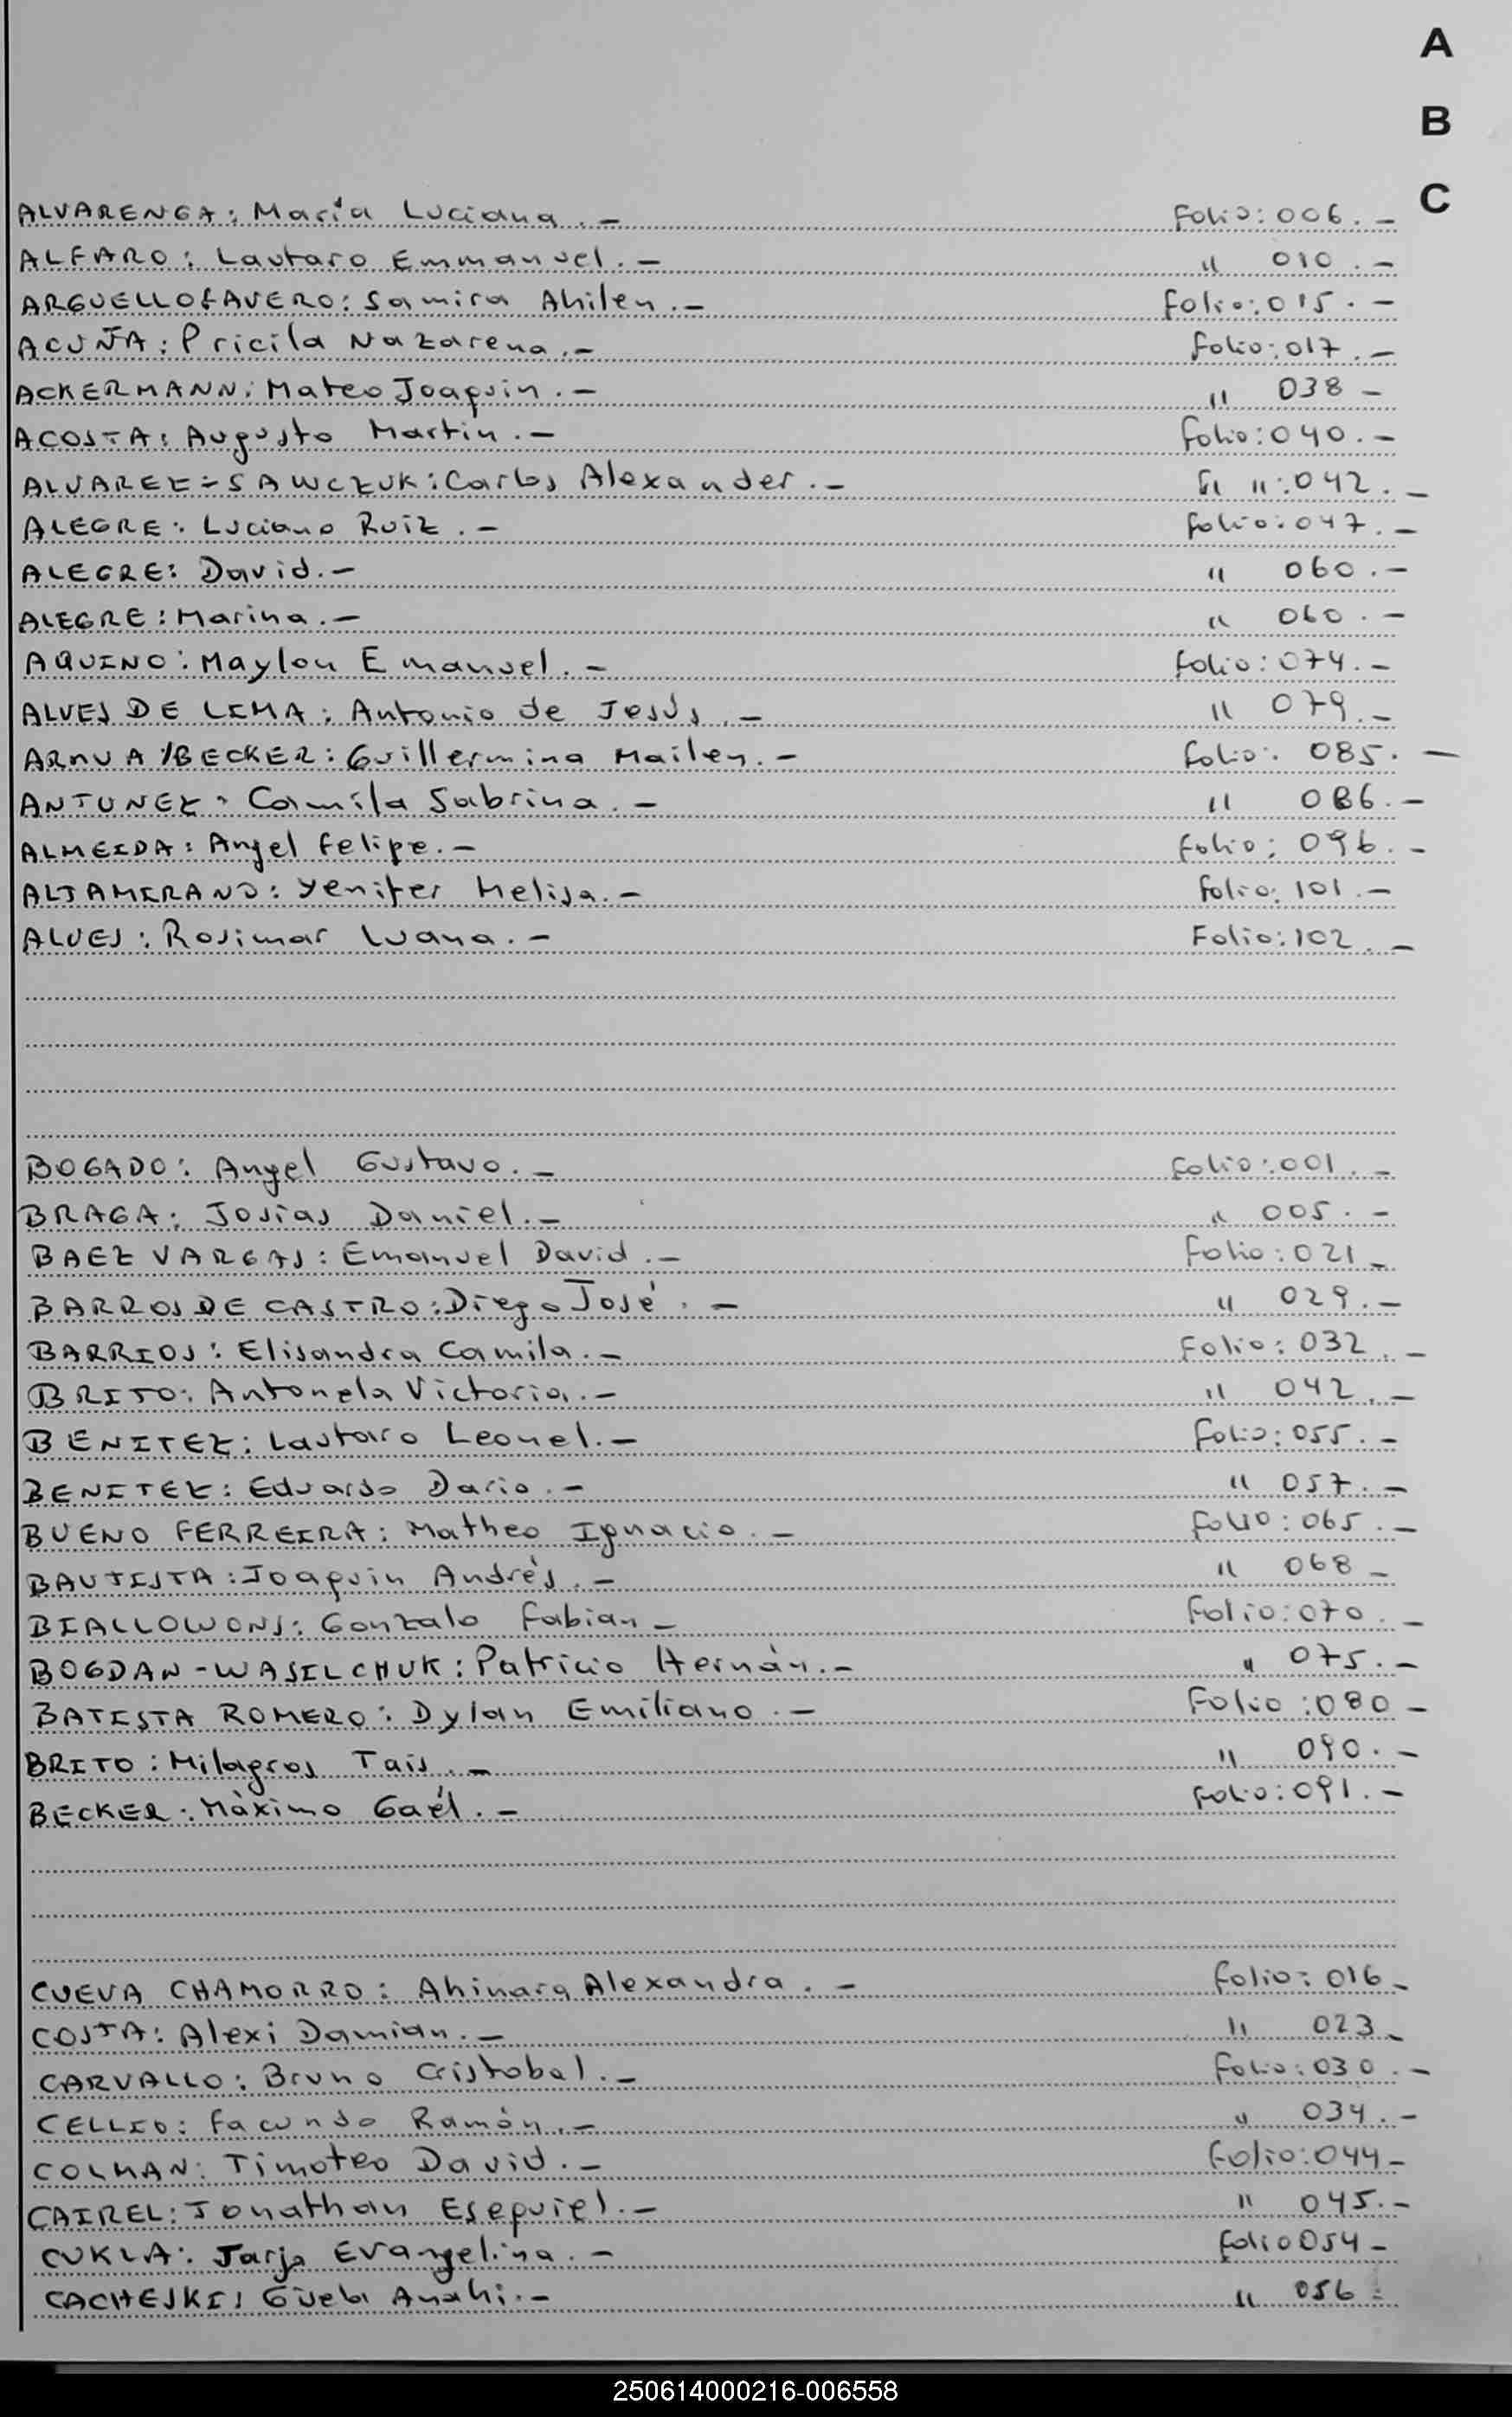 A
B
C
ALVARENGA: María Luciana.- Folio: 006.-
ALFARO: Lautaro Emmanuel.- " 010.-
ARGUELLO FAVERO: Samira Ahilen.- folio: 015.-
ACUÑA: Pricila Nazarena.- folio: 017.-
ACKERMANN: Mateo Joaquin.- " 038-
ACOSTA: Augusto Martin.- folio: 040.-
ALVAREZ-SAWCZUK: Carlos Alexander.- " ": 042.-
ALEGRE: Luciano Ruiz.- folio: 047.-
ALEGRE: David.- " 060.-
ALEGRE: Marina.- " 060.-
AQUINO: Maylon Emanuel.- folio: 074.-
ALVES DE LIMA: Antonio de Jesús.- " 079.-
BECKER: Guillermina Mailen.- folio: 085.-
ANTUNEZ: Camila Sabrina.- " 086.-
ALMEIDA: Angel felipe.- folio: 096.-
ALTAMIRANO: Yenifer Melisa.- folio: 101.-
ALVES: Rosimar Luana.- Folio: 102.-
BOGADO: Angel Gustavo.- folio: 001.-
BRAGA: Josias Daniel.- " 005.-
BAEZ VARGAS: Emanuel David.- Folio: 021-
BARROS DE CASTRO: Diego José.- " 029.-
BARRIOS: Elisandra Camila.- Folio: 032.-
BRITO: Antonela Victoria.- " 042.-
BENITEZ: Lautaro Leonel.- folio: 055.-
BENITEZ: Eduardo Dario.- " 057.-
BUENO FERREIRA: Matheo Ignacio.- folio: 065.-
BAUTISTA: Joaquin Andrés.- " 068-
BIALLOWONS: Gonzalo Fabian- Folio: 070.-
BOGDAN-WASILCHUK: Patricio Hernán.- " 075.-
BATISTA ROMERO: Dylan Emiliano.- Folio: 080-
BRITO: Milagros Tais.- " 090.-
BECKER: Máximo Gaél.- folio: 091.-
CUEVA CHAMORRO: Ahinara Alexandra.- folio: 016-
COSTA: Alexi Damián.- " 023-
CARVALLO: Bruno Cristobal.- folio: 030.-
CELLIO: Facundo Ramón.- " 034.-
COLMAN: Timoteo David.- folio: 044-
CAIREL: Jonathan Esequiel.- " 045.-
CUKLA: Evangelina.- folio 054-
CACHESKI: Anahi.- " 056
250614000216-006558